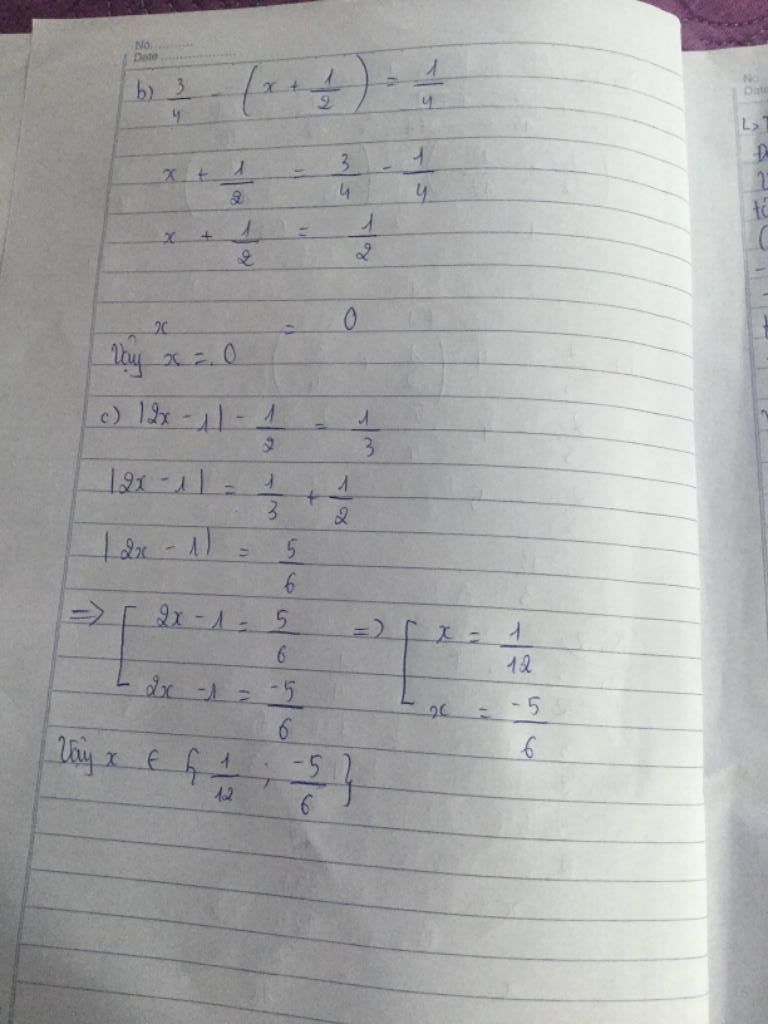 No. ..........
Date ....................
b) 3/4 - (x + 1/2) = 1/4
x + 1/2 = 3/4 - 1/4
x + 1/2 = 1/2
x = 0
Vậy x = 0
c) |2x - 1| - 1/2 = 1/3
|2x - 1| = 1/3 + 1/2
|2x - 1| = 5/6
=> [ 2x - 1 = 5/6 => [ x = 1/12
2x - 1 = -5/6 x = -5/6
Vậy x ∈ { 1/12 ; -5/6 }
No
Date